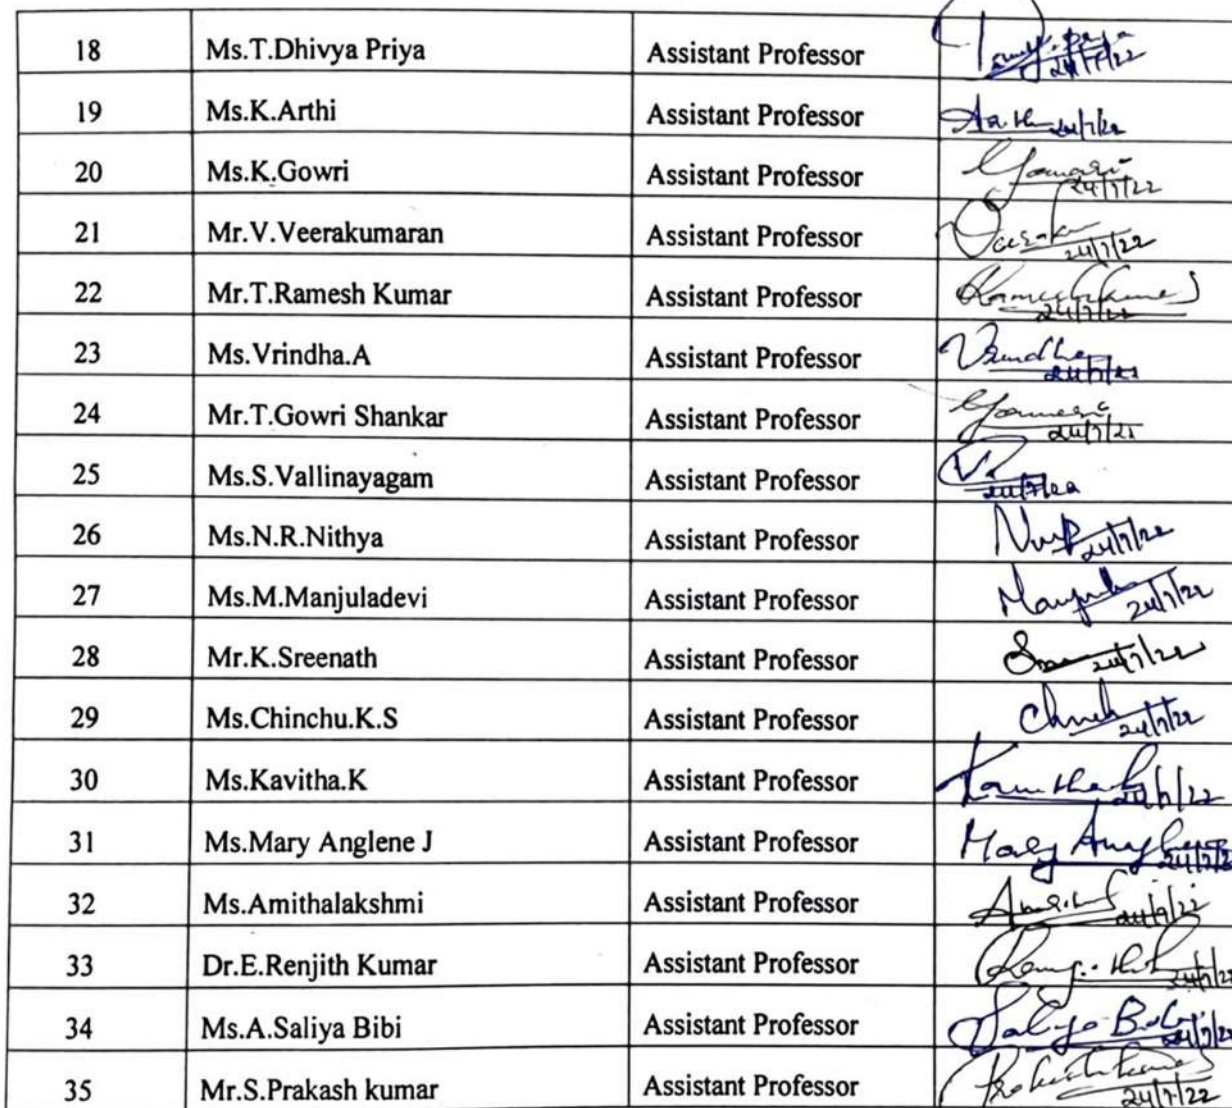 18 Ms.T.Dhivya Priya Assistant Professor 24/7/22
19 Ms.K.Arthi Assistant Professor 24/7/22
20 Ms.K.Gowri Assistant Professor Gowri 24/7/22
21 Mr.V.Veerakumaran Assistant Professor 24/7/22
22 Mr.T.Ramesh Kumar Assistant Professor 24/7/22
23 Ms.Vrindha.A Assistant Professor Vrindha 24/7/22
24 Mr.T.Gowri Shankar Assistant Professor 24/7/22
25 Ms.S.Vallinayagam Assistant Professor 24/7/22
26 Ms.N.R.Nithya Assistant Professor 24/7/22
27 Ms.M.Manjuladevi Assistant Professor 24/7/22
28 Mr.K.Sreenath Assistant Professor 24/7/22
29 Ms.Chinchu.K.S Assistant Professor 24/7/22
30 Ms.Kavitha.K Assistant Professor 24/7/22
31 Ms.Mary Anglene J Assistant Professor Mary
32 Ms.Amithalakshmi Assistant Professor 24/7/22
33 Dr.E.Renjith Kumar Assistant Professor
34 Ms.A.Saliya Bibi Assistant Professor
35 Mr.S.Prakash kumar Assistant Professor 24/7/22